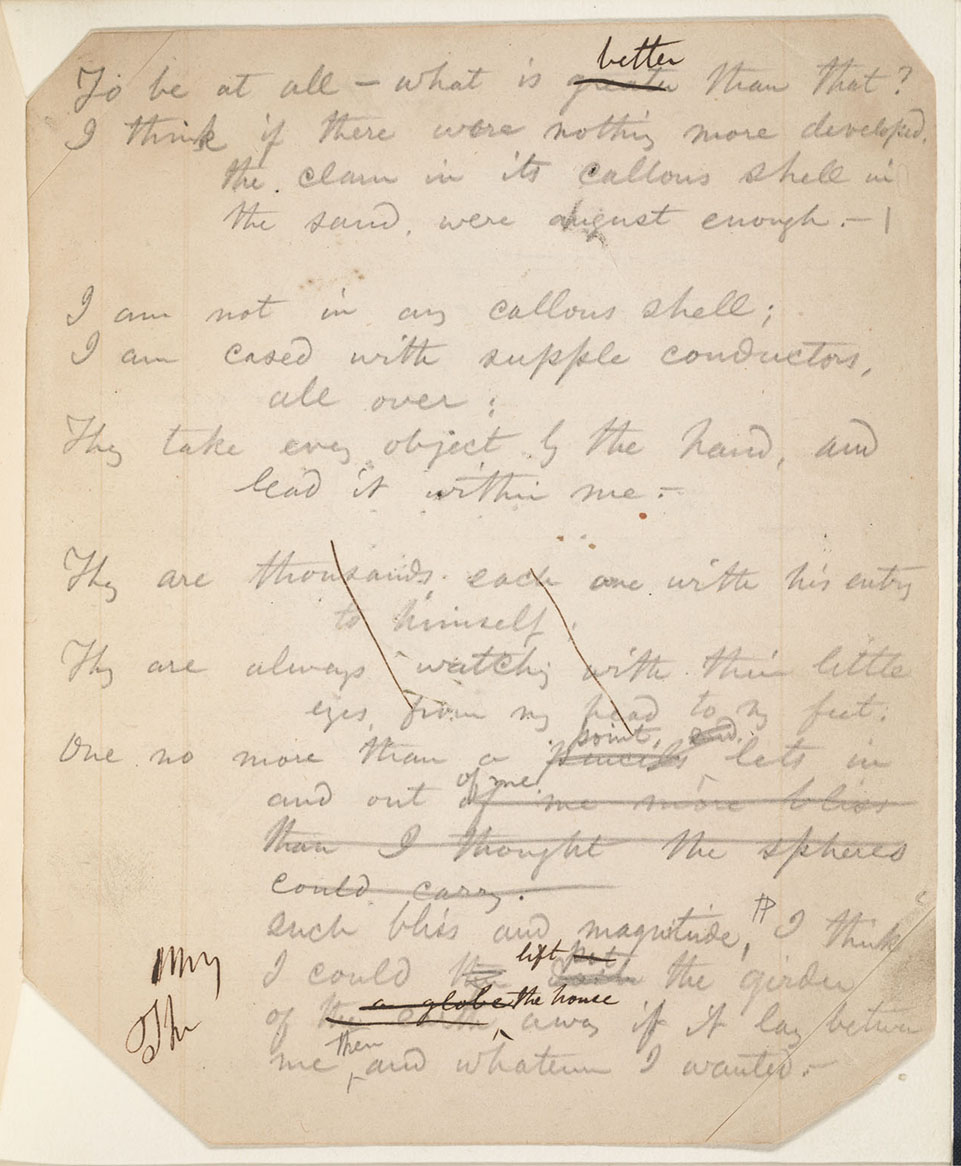 better
To be at all – what is greater than that?
I think if there were nothing more developed,
the clam in its callous shell in
the sand, were august enough. – |
I am not in any callous shell;
I am cased with supple conductors,
all over;
They take every object by the hand, and
lead it within me. –
They are thousands, each one with his entry
to himself;
They are always watching with their little
eyes, from my head to my feet;
point, and
One no more than a lets in
of me
and out of me more bliss
than I thought the spheres
could carry.
such bliss and magnitude, I think
lift
I could the girder
a globe the house
of the earth away if it lay between
then
me, and whatever I wanted. –
My
The